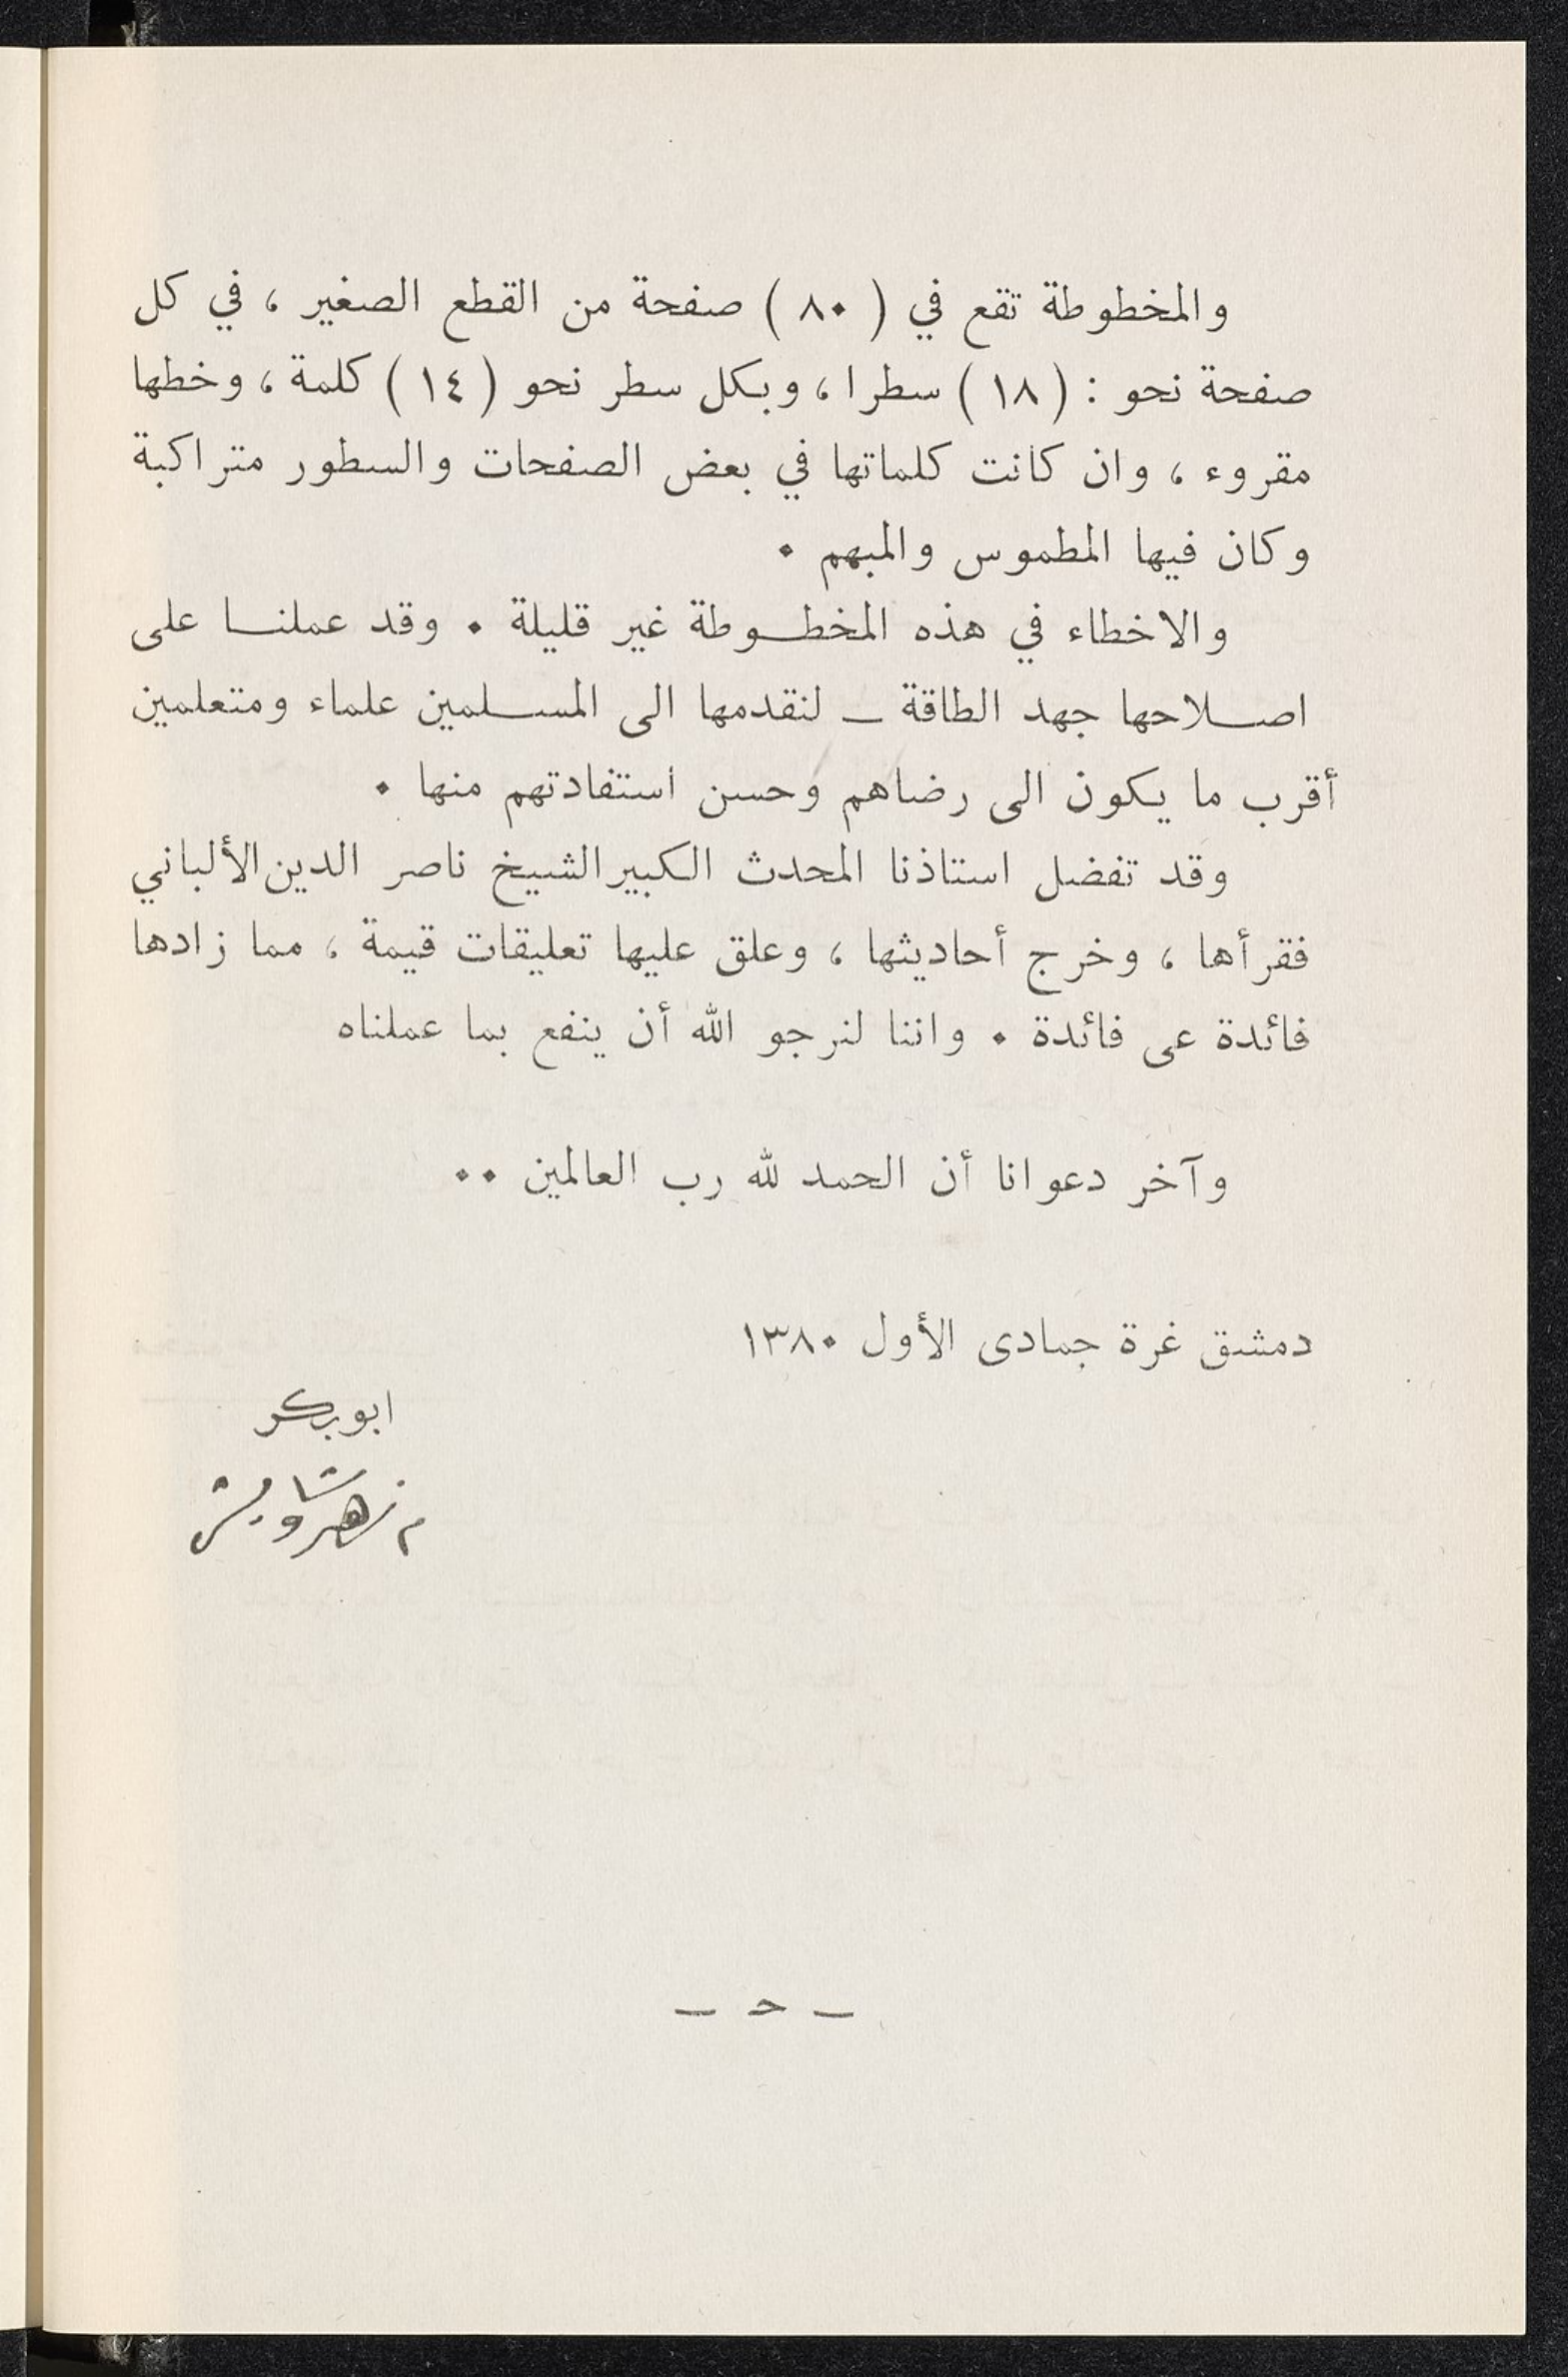 والمخطوطة تقع في ( ٨٠ ) صفحة من القطع الصغير ، في كل
صفحة نحو : ( ١٨ ) سطرا ، وبكل سطر نحو ( ١٤ ) كلمة ، وخطها
مقروء ، وان كانت كلماتها في بعض الصفحات والسطور متراكبة
وكان فيها المطموس والمبهم ٠
والاخطاء في هذه المخطوطة غير قليلة ٠ وقد عملنا على
اصلاحها جهد الطاقة ــ لنقدمها الى المسلمين علماء ومتعلمين
أقرب ما يكون الى رضاهم وحسن استفادتهم منها ٠
وقد تفضل استاذنا المحدث الكبير الشيخ ناصر الدين الألباني
فقرأها ، وخرج أحاديثها ، وعلق عليها تعليقات قيمة ، مما زادها
فائدة عى فائدة ٠ واننا لنرجو الله أن ينفع بما عملناه
وآخر دعوانا أن الحمد لله رب العالمين ٠٠
دمشق غرة جمادى الأول ١٣٨٠
ابو بكر
م زهير شاويش
ــ حـ ــ